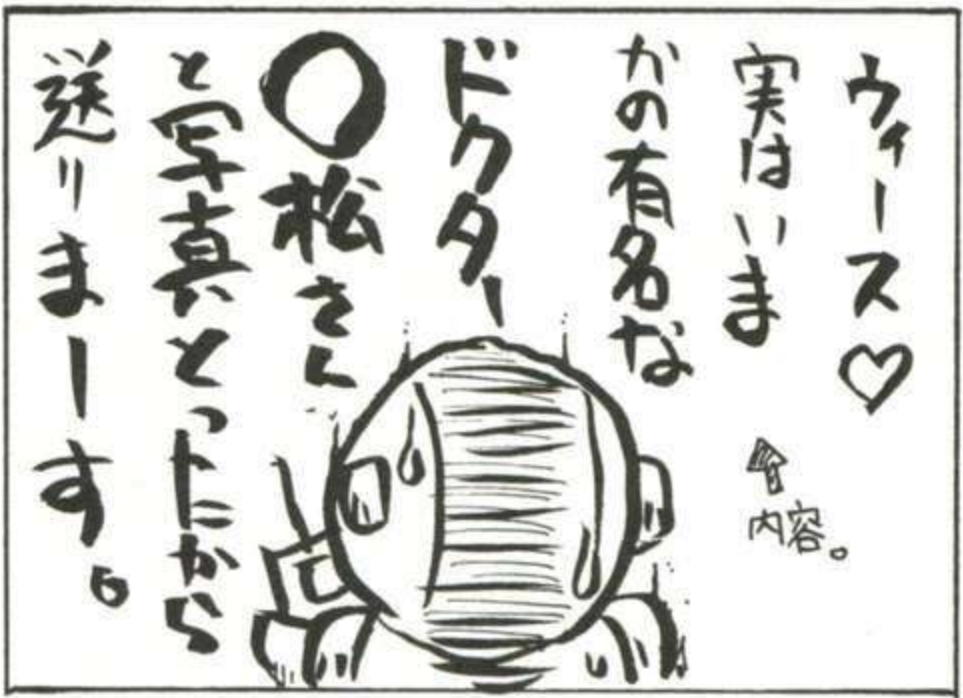 ウィース♡
実はいま
かの有名な
ドクター
〇松さん
と写真とったから
送りまーす。
内容。